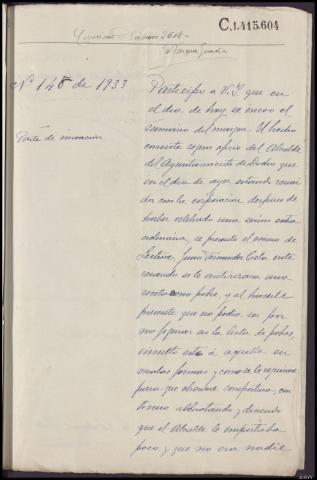 C.1.415.604
Nº 148 de 1933
Parte de incoación
Participo a V.I. que en
el dia de hoy se incoó el
sumario del margen. El hecho
consiste segun oficio del Alcalde
del Ayuntamiento de que
en el dia de ayer estando reuni
da la corporacion despues de
haber celebrado una sesion extra
ordinaria, se presentó el vecino de
Juan Fernandez inte
resando se le autorizara una
receta como pobre, y al hacerle
presente que no podia ser por
no figurar en la lista de pobres,
insultó este á aquella en
malas formas y como se le requiriese
para que observase compostura, con
tinuó alborotando y diciendo
que el Alcalde le importaba
poco y que no era nadie